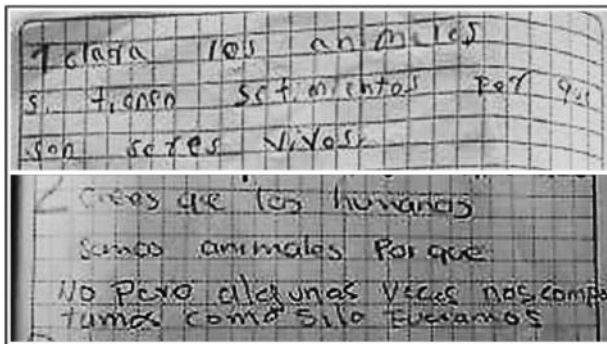 1 clara los animales
si tienen setimientos por que
son seres vivos.
2 crees que los humanos
somos animales Por que
No Pero algunas veces nos compo
tamos como silo fueramos